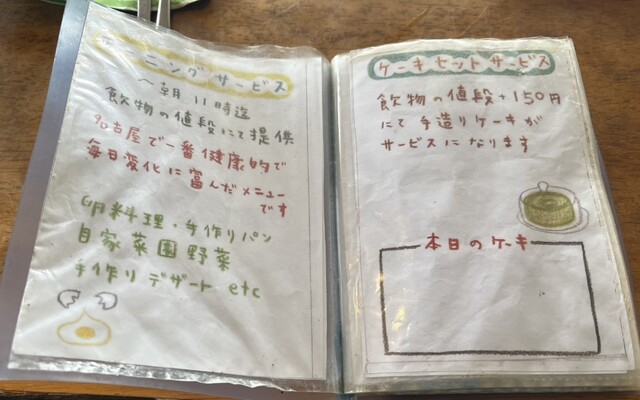 ーニングサービス
〜朝11時迄
飲物の値段にて提供
名古屋で一番健康的で
毎日変化に富んだメニュー
です
卵料理・手作りパン
自家菜園野菜
手作りデザート etc
ケーキセットサービス
飲物の値段+150円
にて手造りケーキが
サービスになります
本日のケーキ